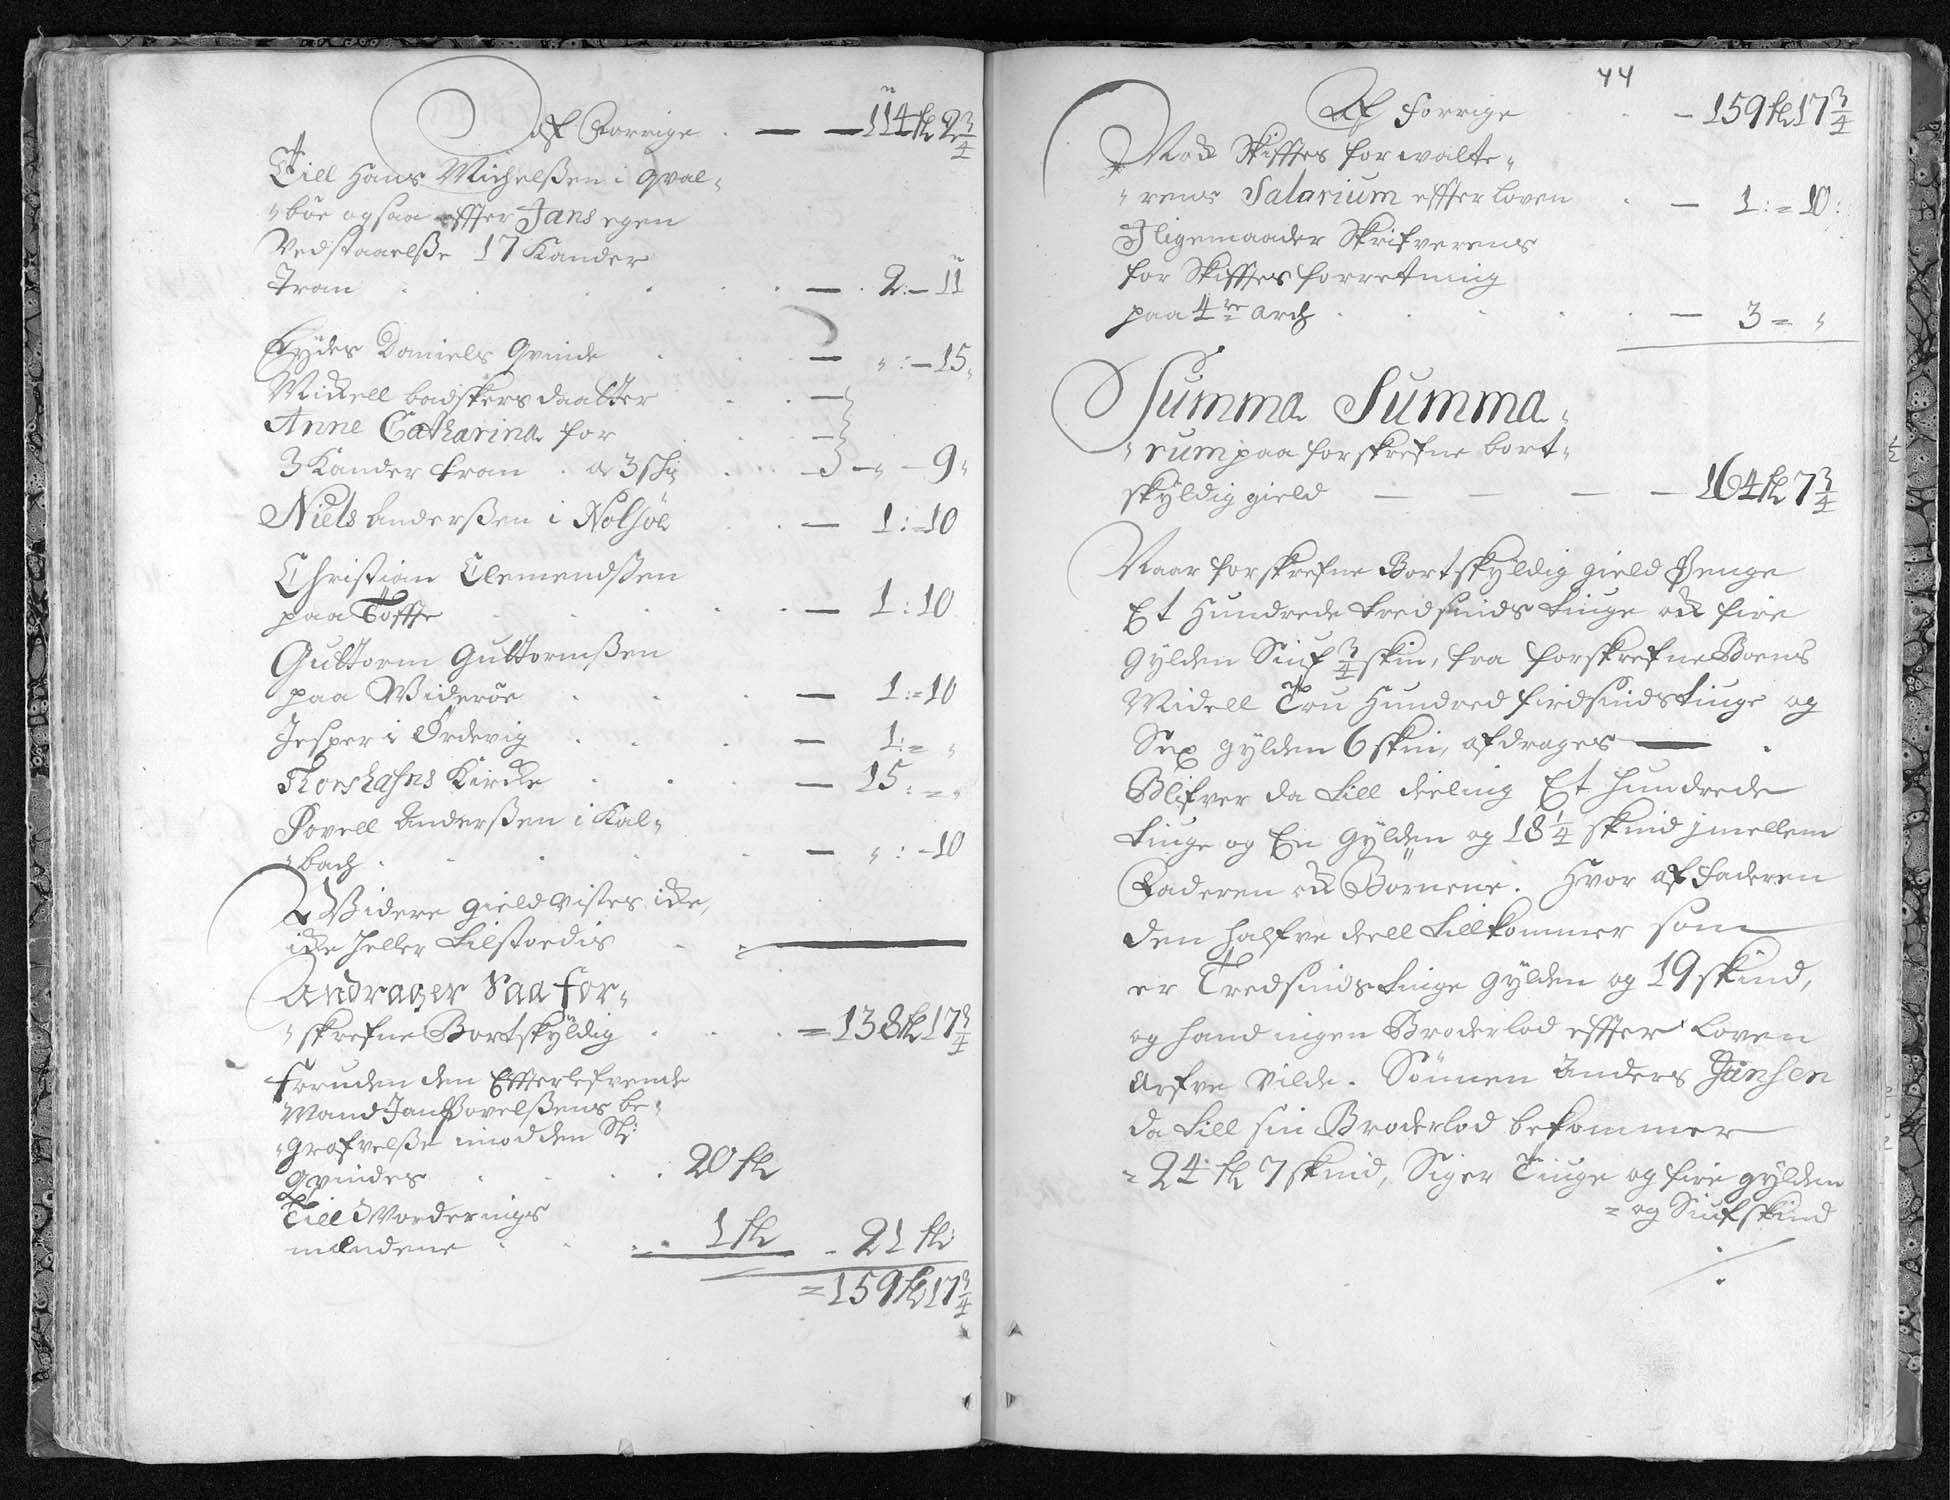 af Forrige . — — 114 fl 2 3/4
Till Hans Michelßen i Qval„
„böe ogsaa effter Jans egen
Vedstaaelße 17 Kander
Tran . . . . . — . 2 : – 11
Lydes Daniels Qvinde . . — „ : – 15„
Mickell badskers daatter . . —
Anne Catharina for . . —
3 Kander tran . a 3 sk: . . — „ – 9„
Niels Anderßen i Nolsöe . . — 1 : = 10
Christian Clemendßen
paa Töffte . . . . — 1 : 10
Guttorm Guttormßen
paa Wideröe . . . — 1 : = 10
Jesper i Ördevig . . . — 1 : = „
Thorshafns Kircke . . . — 15 : = „
Povell Anderßen i Kal„
„bach . . . . . — „ : – 10
Widere gield vistes icke,
icke heller tilstoedis . . —
Andrager Saa for„
„skrefne Bortskÿldig . . . = 138 fl 17 3/4
Foruden den Effterlefvende
Mand Jan Povelßens be„
„grafvelße imod den Sl:
Qvindes . . . . 20 fl
Till Vorderings
mændene . . . . 1 fl – 21 fl:
= 159 fl 17 3/4
44
Af Forrige . . – 159 fl 17 3/4
Nock Skifftes forwalte„
„rens Salarium effter loven . — 1 : = 10 :
Iligemaader Skrifverens
for Skifftes forretning
paa 4re arch . . . . . — 3 = „
Summa Summa„
„rum paa forskrefne bort„
skÿldig gield — — — — 164 fl 7 3/4
Naar forskrefne Bortskÿldig gield Penge
Et Hundrede tredsinds tiuge ock fire
Gÿlden Siuf 3/4 skin, fra forskrefne Boens
Midell Tou Hundred firdsinds tiuge og
Sex gÿlden 6 skin, afdrages — .
Blifver da till deeling Et hundrede
tiuge og En Gÿlden og 18 1/4 skind jmellem
Faderen ock Börnene. Hvor af Faderen
den halfve deell tillkommer som
er Tredsinds tiuge gÿlden og 19 skind,
og hand ingen Broderlod effter loven
Arfve vilde. Sönnen Anders Jansen
da till sin Broderlod bekommer
= 24 fl 7 skind, Siger Tiuge og fire gÿlden
= og Siuf skind